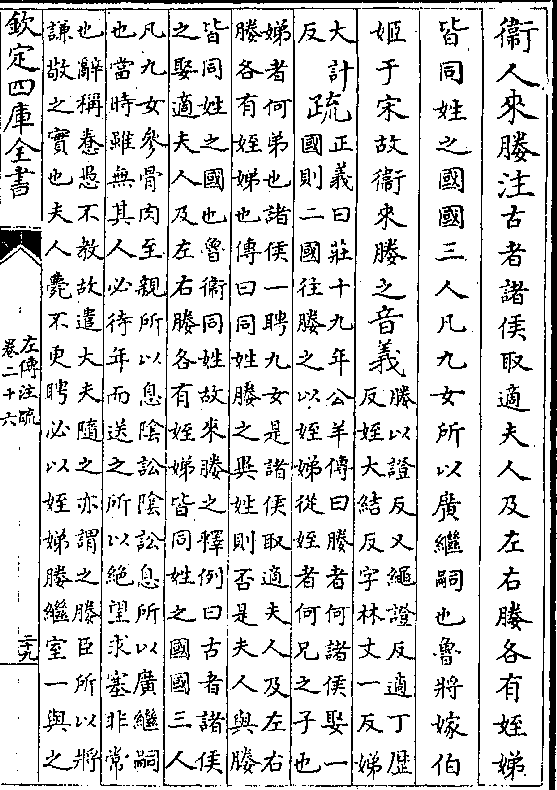 衞人來媵注古者諸侯取適夫人及左右媵各有姪娣
皆同姓之國國三人凡九女所以廣繼嗣也魯將嫁伯
姬于宋故衞來媵之音義媵以證反又繩證反適丁歴
反姪大結反字林丈一反娣
大計
反疏正義曰莊十九年公羊傳曰媵者何諸侯娶一
國則二國往媵之以姪娣從姪者何兄之子也
娣者何弟也諸侯一聘九女是諸侯取適夫人及左右
媵各有姪娣也傳曰同姓媵之異姓則否是夫人與媵
皆同姓之國也魯衞同姓故來媵之釋例曰古者諸侯
之娶適夫人及左右媵各有姪娣皆同姓之國國三人
凡九女參骨肉至親所以息陰訟陰訟息所以廣繼嗣
也當時雖無其人必待年而送之所以絶望求塞非常
也辭稱惷愚不教故遣大夫隨之亦謂之媵臣所以將
謙敬之實也夫人薨不更聘必以姪娣媵繼室一與之
欽定四庫全書
左傳注疏
卷二十六
二十九